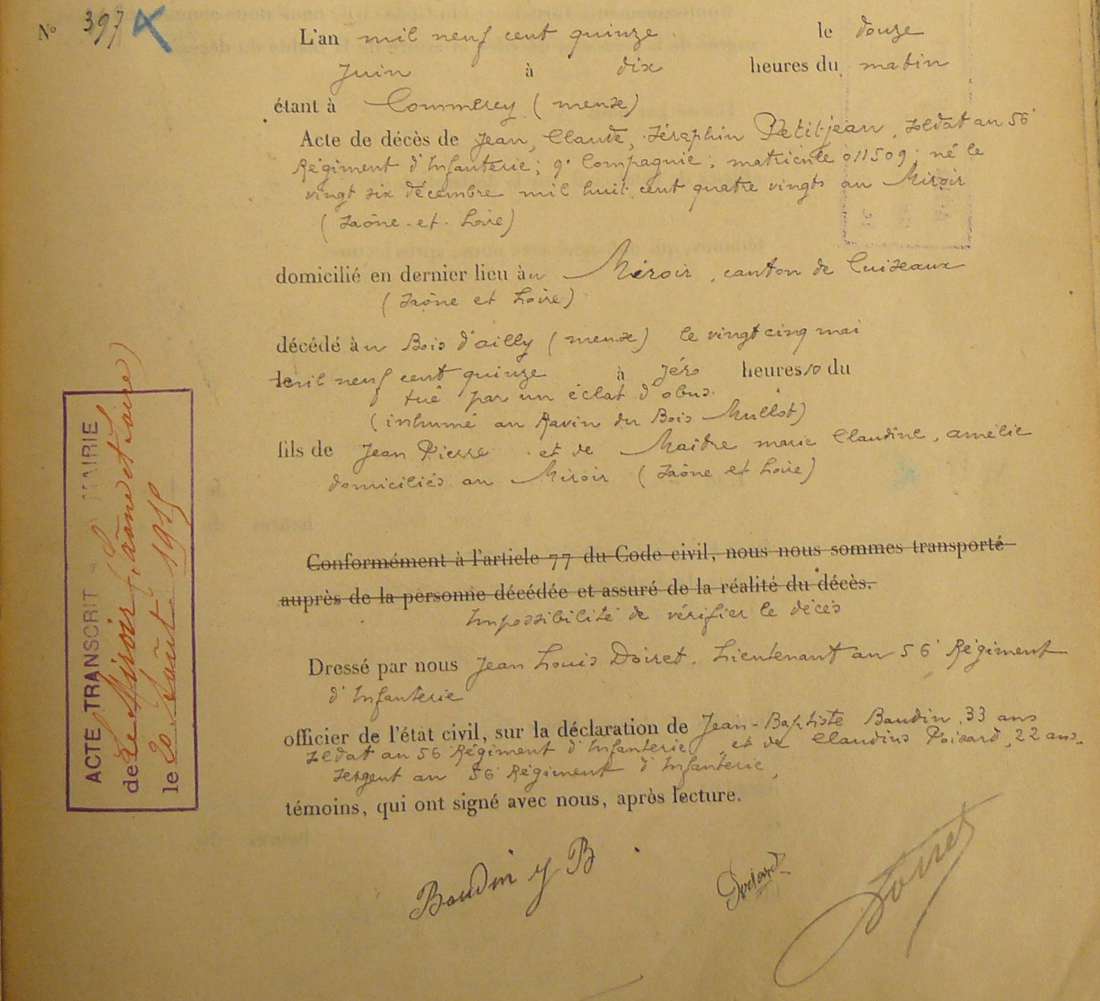 N° 397
L'an mil neuf cent quinze le douze
Juin à dix heures du matin
étant à Commercy (meuse)
Acte de décès de Jean, Claude, Séraphin Petitjean, Soldat au 56e
Régiment d'Infanterie; 9e Compagnie; matricule 011509; né le
vingt six décembre mil huit cent quatre vingts au Miroir
(Saône-et-Loire)
domicilié en dernier lieu au Miroir, canton de Cuiseaux
(Saône et Loire)
décédé au Bois d'ailly (meuse) le vingt cinq mai
mil neuf cent quinze à zéro heures 10 du
tué par un éclat d'obus
(inhumé au Ravin du Bois Mullot)
fils de Jean Pierre et de Maitre marie Claudine, amélie
domiciliés au Miroir (Saône et Loire)
Conformément à l'article 77 du Code civil, nous nous sommes transporté
auprès de la personne décédée et assuré de la réalité du décès.
Impossibilité de vérifier le décès
Dressé par nous Jean Louis Doiret, Lieutenant au 56e Régiment
d'Infanterie
officier de l'état civil, sur la déclaration de Jean-Baptiste Baudin, 33 ans
Soldat au 56 Régiment d'Infanterie et de Claudius Poisard, 22 ans,
Sergent au 56 Régiment d'Infanterie,
témoins, qui ont signé avec nous, après lecture.
Baudin J B
Doiret
ACTE TRANSCRIT MAIRIE
de Le Miroir (Saône et Loire)
le 20 Août 1915